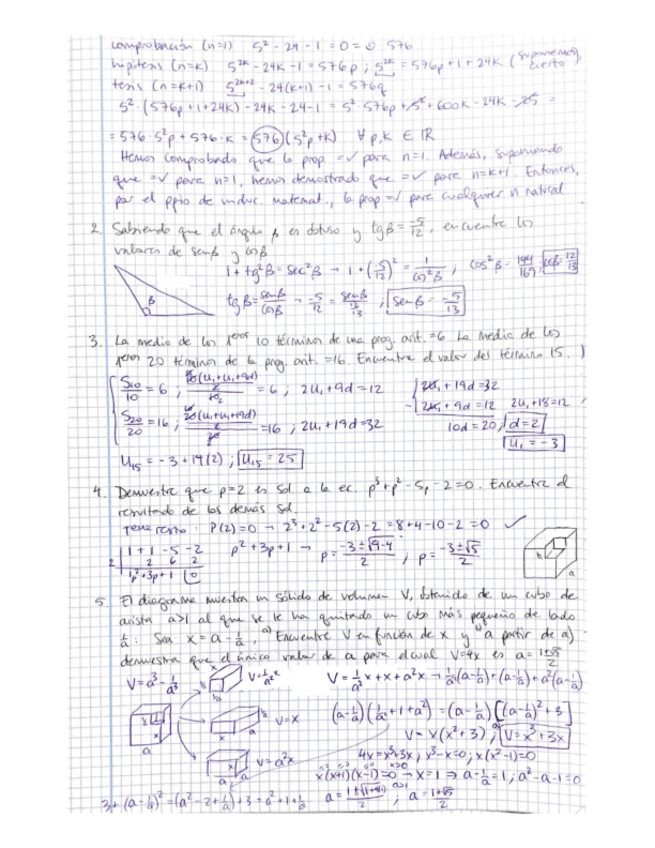 comprobación (n=1) 5² - 24 - 1 = 0 = 0 · 576
hipótesis (n=k) 5²ᵏ - 24k - 1 = 576p ; 5²ᵏ = 576p + 1 + 24k (suponemos cierto)
tesis (n=k+1) 5²ᵏ⁺² - 24(k+1) - 1 = 576q
5² · (576p + 1 + 24k) - 24k - 24 - 1 = 5² · 576p + 5² + 600k - 24k - 25 =
= 576 · 5²p + 576 · k = 576 (5²p + k) ∀ p,k ∈ ℝ
Hemos comprobado que la prop. =V para n=1. Además, suponiendo
que =V para n=1, hemos demostrado que =V para n=k+1. Entonces,
por el ppio de induc. matemat., la prop =V para cualquier n natural
2. Sabiendo que el ángulo β es obtuso y tgβ = -5/12, encuentre los
valores de senβ y cosβ
1 + tg²β = sec²β → 1 + (-5/12)² = 1/cos²β ; cos²β = 144/169 ; cosβ = 12/13
β
tgβ = senβ/cosβ → -5/12 = senβ/(12/13) ; senβ = -5/13
3. La media de los 1eros 10 términos de una prog. arit. = 6. La media de los
1eros 20 términos de la prog. arit. = 16. Encuentre el valor del término 15.
S₁₀/10 = 6 ; (10(u₁+u₁+9d)/2)/10 = 6 ; 2u₁ + 9d = 12
2u₁ + 19d = 32
- 2u₁ + 9d = 12 2u₁ + 18 = 12
S₂₀/20 = 16 ; (20(u₁+u₁+19d)/2)/20 = 16 ; 2u₁ + 19d = 32
10d = 20 ; d = 2
u₁ = -3
u₁₅ = -3 + 14(2) ; u₁₅ = 25
4. Demuestre que p=2 es sol. a la ec. p³ + p² - 5p - 2 = 0. Encuentre el
resultado de las demás sol.
Teno resto: P(2) = 0 → 2³ + 2² - 5(2) - 2 = 8 + 4 - 10 - 2 = 0 ✓
1 + 1 - 5 - 2
2 2 6 2
1p² + 3p + 1 0
p² + 3p + 1 → p = (-3 ± √(9-4))/2 ; p = (-3 ± √5)/2
a
5. El diagrama muestra un sólido de volumen V, obtenido de un cubo de
arista a>1 al que se le ha quitado un cubo más pequeño de lado
1/a. Sea x = a - 1/a. a) Encuentre V en función de x y a partir de a)
demuestra que el único valor de a para el cual V=4x es a = (1+√5)/2
V = a³ - 1/a³
V = 1/a² x
V = 1/a² x + x + a²x → 1/a² (a - 1/a) + (a - 1/a) + a² (a - 1/a)
V = x
(a - 1/a)(1/a² + 1 + a²) = (a - 1/a)[(a - 1/a)² + 3]
V = x(x² + 3) ; V = x³ + 3x
V = a²x
4x = x³ + 3x ; x³ - x = 0 ; x(x² - 1) = 0
x(x+1)(x-1) = 0 → x = 1 ⇒ a - 1/a = 1 ; a² - a - 1 = 0
3 + (a - 1/a)² = (a² - 2 + 1/a²) + 3 = a² + 1 + 1/a² a = (1 ± √(1+4(1)))/2 ; a = (1+√5)/2